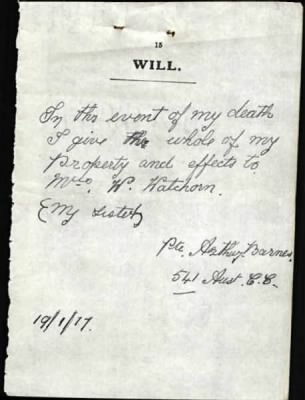 15
WILL.
In the event of my death
I give the whole of my
Property and effects to
Mrs. W. Watchorn.
(My Sister)
Pte. Arthur Barnes.
541 Aust. C.C.
19/1/17.